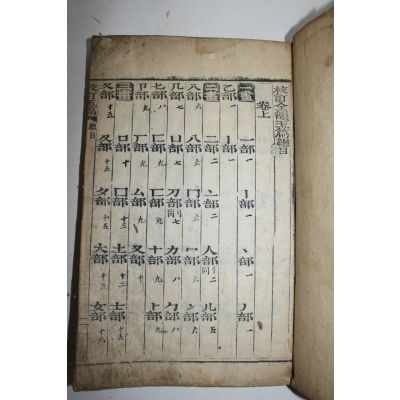 校訂全韻玉篇總目
卷上
一畫 一部一 丨部一 丶部一 丿部一
乙部一 亅部一
二畫 二部二 亠部二 人部二亻同 儿部五
入部六 八部六 冂部六 冖部六 冫部六
几部七 凵部七 刀部七刂同 力部八 勹部八
匕部八 匚部八 匸部九 十部九 卜部九
卩部九 厂部九 厶部九 又部十
三畫 口部十 囗部十三 土部十三 士部十五
夂部十五 夊部十五 夕部十五 大部十五 女部十六
校訂玉篇 總目